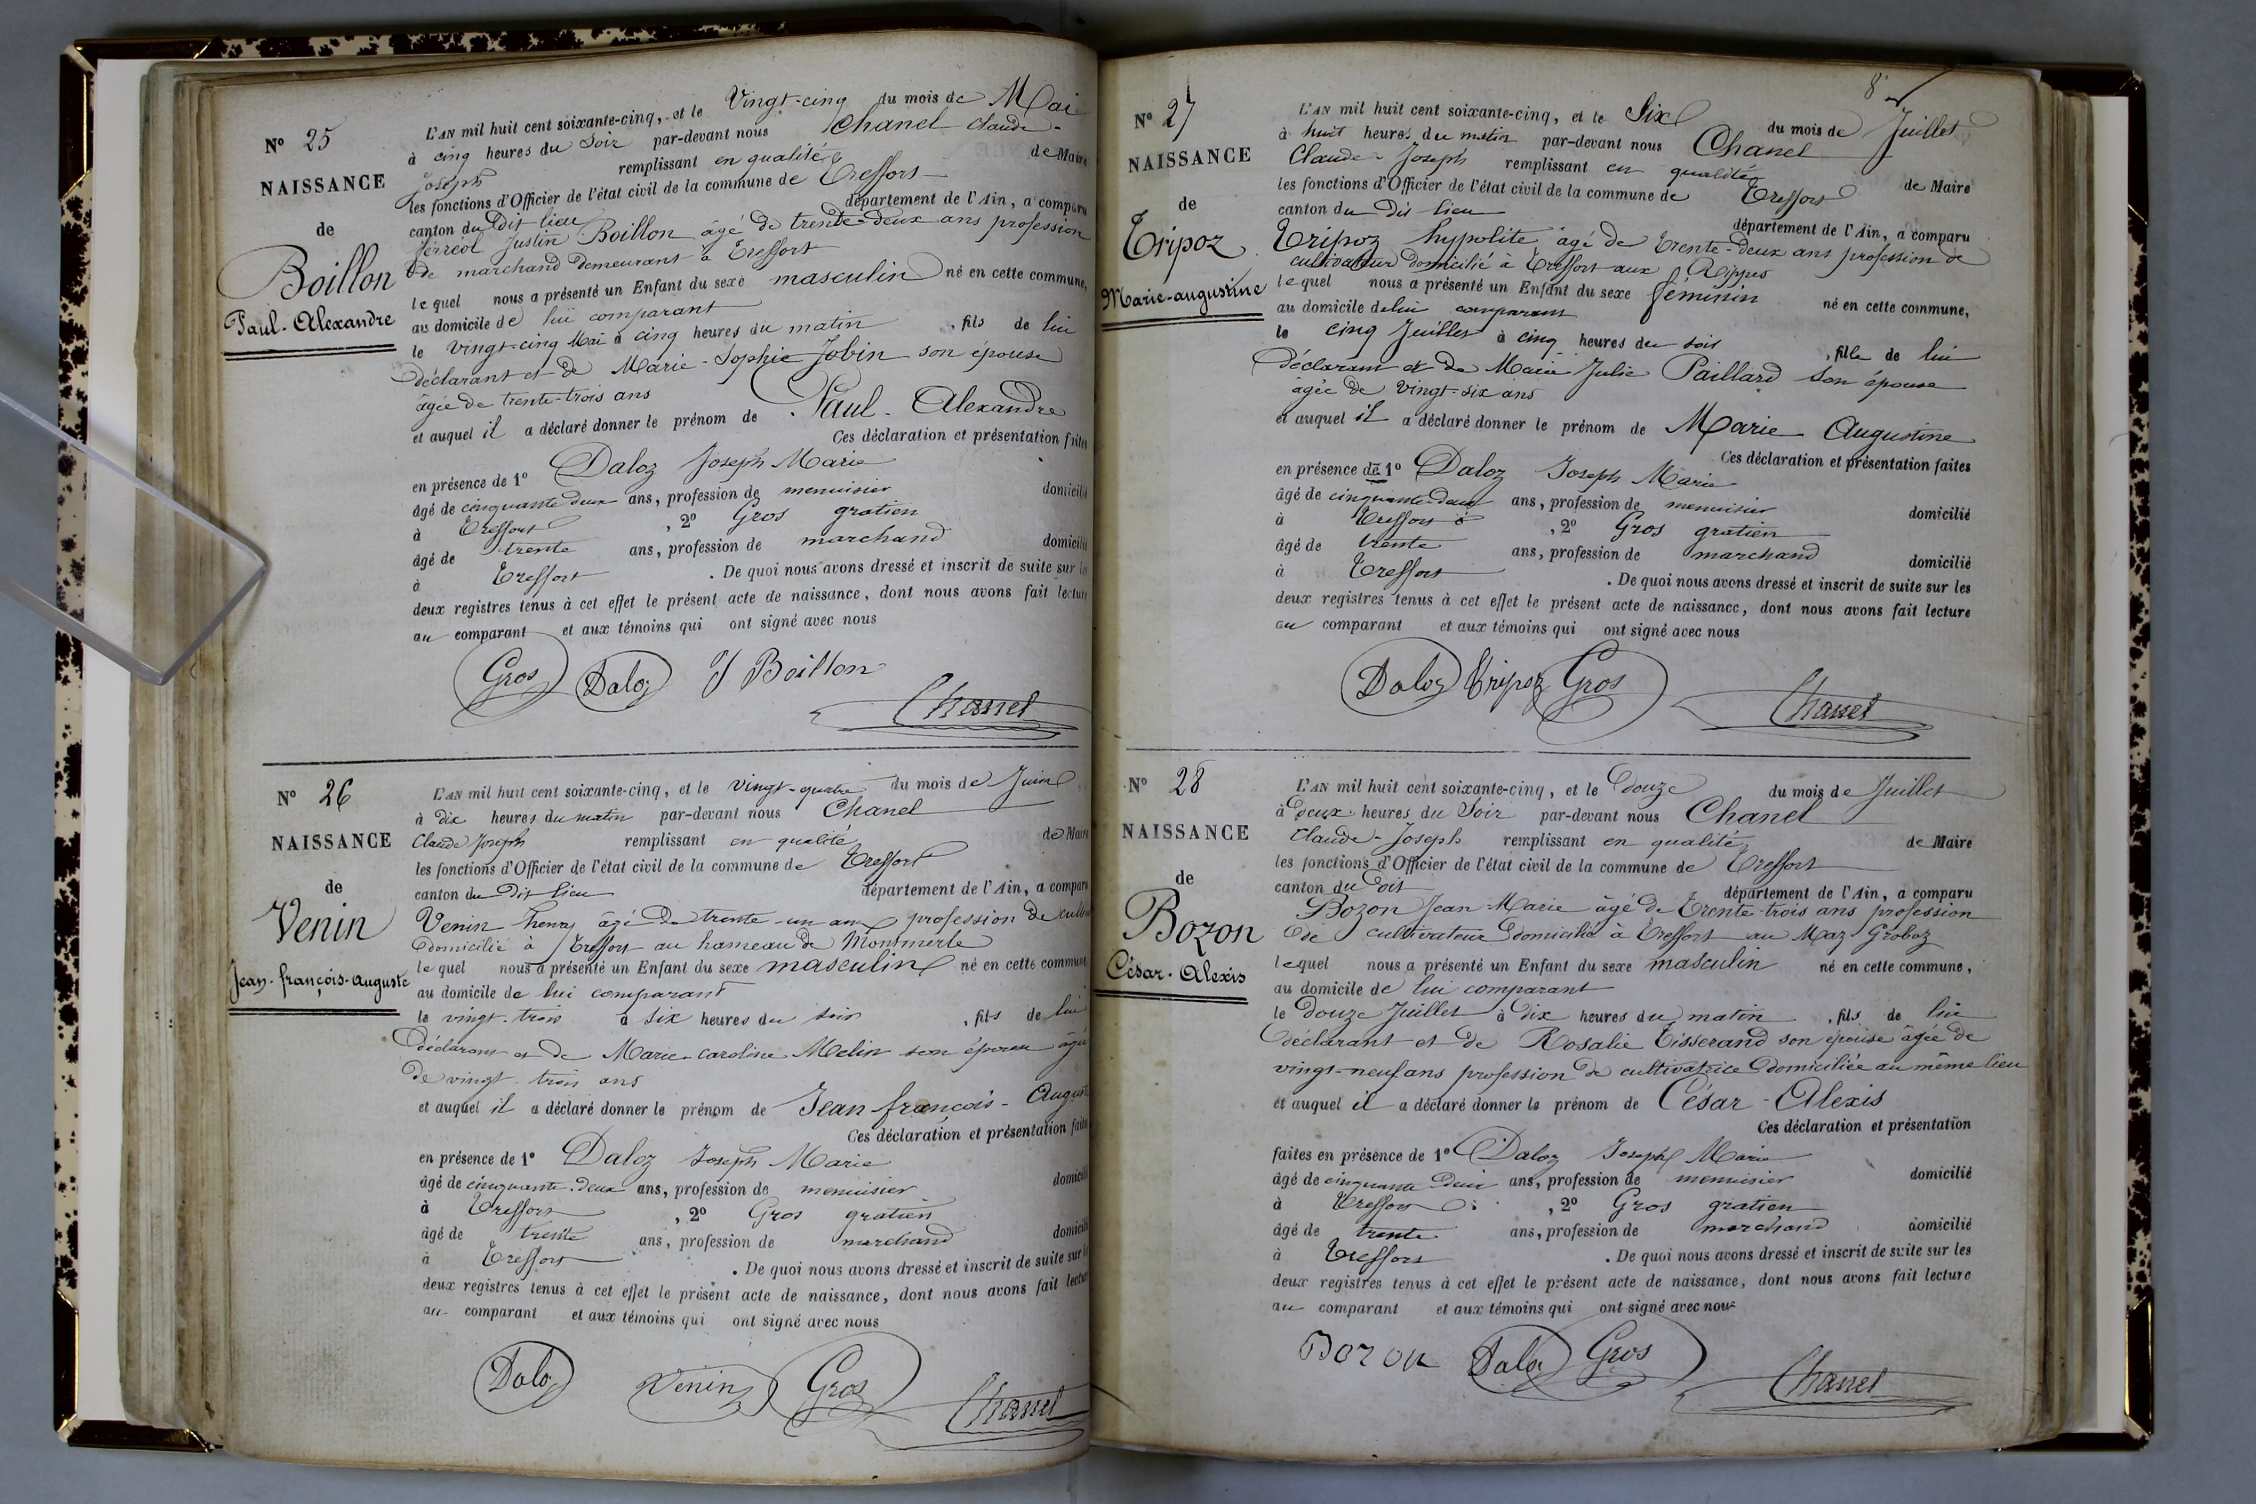 N° 25
NAISSANCE
de
Boillon
Paul-Alexandre
L'AN mil huit cent soixante-cinq, et le Vingt-cinq du mois de Mai
à cinq heures du Soir par-devant nous Chanel Claude-
Joseph remplissant en qualité de Maire
les fonctions d'Officier de l'état civil de la commune de Treffort
canton du Dit lieu département de l'Ain, a comparu
Ferréol Justin Boillon âgé de trente-deux ans profession
de marchand demeurant à Treffort
le quel nous a présenté un Enfant du sexe masculin né en cette commune,
au domicile de lui comparant
le vingt-cinq Mai à cinq heures du matin , fils de lui
déclarant et de Marie-Sophie Jobin son épouse
âgée de trente-trois ans
et auquel il a déclaré donner le prénom de Paul-Alexandre
Ces déclaration et présentation faites
en présence de 1° Daloz Joseph Marie
âgé de cinquante deux ans, profession de menuisier domicilié
à Treffort , 2° Gros gratien
âgé de trente ans, profession de marchand domicilié
à Treffort . De quoi nous avons dressé et inscrit de suite sur les
deux registres tenus à cet effet le présent acte de naissance, dont nous avons fait lecture
au comparant et aux témoins qui ont signé avec nous
Gros Daloz J Boillon
Chanel
N° 26
NAISSANCE
de
Venin
Jean-françois-auguste
L'AN mil huit cent soixante-cinq, et le vingt-quatre du mois de Juin
à dix heures du matin par-devant nous Chanel
Claude Joseph remplissant en qualité de Maire
les fonctions d'Officier de l'état civil de la commune de Treffort
canton du Dit lieu département de l'Ain, a comparu
Venin henry âgé de trente-un ans profession de
domicilié à Treffort au hameau de Montmerle
le quel nous a présenté un Enfant du sexe masculin né en cette commune
au domicile de lui comparant
le vingt-trois à six heures du soir , fils de lui
déclarant et de Marie-Caroline Melin son épouse âgée
de vingt-trois ans
et auquel il a déclaré donner le prénom de Jean françois-Auguste
Ces déclaration et présentation faites
en présence de 1° Daloz Joseph Marie
âgé de cinquante-deux ans, profession de menuisier domicilié
à Treffort , 2° Gros gratien
âgé de trente ans, profession de marchand domicilié
à Treffort . De quoi nous avons dressé et inscrit de suite sur les
deux registres tenus à cet effet le présent acte de naissance, dont nous avons fait lecture
au comparant et aux témoins qui ont signé avec nous
Daloz Venin Gros
Chanel
8
N° 27
NAISSANCE
de
Tripoz
Marie-augustine
L'AN mil huit cent soixante-cinq, et le Six du mois de Juillet
à huit heures du matin par-devant nous Chanel
Claude-Joseph remplissant en qualité de Maire
les fonctions d'Officier de l'état civil de la commune de Treffort
canton du Dit lieu département de l'Ain, a comparu
Tripoz hypolite âgé de trente-deux ans profession de
cultivateur domicilié à Treffort aux Rippes
le quel nous a présenté un Enfant du sexe féminin né en cette commune,
au domicile de lui comparant
le cinq Juillet à cinq heures du soir , fille de lui
déclarant et de Marie Julie Paillard son épouse
âgée de vingt-six ans
et auquel il a déclaré donner le prénom de Marie Augustine
Ces déclaration et présentation faites
en présence de 1° Daloz Joseph Marie
âgé de cinquante-deux ans, profession de menuisier domicilié
à Treffort , 2° Gros gratien
âgé de trente ans, profession de marchand domicilié
à Treffort . De quoi nous avons dressé et inscrit de suite sur les
deux registres tenus à cet effet le présent acte de naissance, dont nous avons fait lecture
au comparant et aux témoins qui ont signé avec nous
Daloz Tripoz Gros
Chanel
N° 28
NAISSANCE
de
Bozon
César-Alexis
L'AN mil huit cent soixante-cinq, et le douze du mois de Juillet
à deux heures du Soir par-devant nous Chanel
Claude-Joseph remplissant en qualité de Maire
les fonctions d'Officier de l'état civil de la commune de Treffort
canton du Doit département de l'Ain, a comparu
Bozon Jean-Marie âgé de trente-trois ans profession
de cultivateur domicilié à Treffort au Maz Groboz
lequel nous a présenté un Enfant du sexe masculin né en cette commune,
au domicile de lui comparant
le douze Juillet à dix heures du matin , fils de lui
déclarant et de Rosalie Tisserand son épouse âgée de
vingt-neuf ans profession de cultivatrice domiciliée au même lieu
et auquel il a déclaré donner le prénom de César-Alexis
Ces déclaration et présentation
faites en présence de 1° Daloz Joseph Marie
âgé de cinquante deux ans, profession de menuisier domicilié
à Treffort , 2° Gros gratien
âgé de trente ans, profession de marchand domicilié
à Treffort . De quoi nous avons dressé et inscrit de suite sur les
deux registres tenus à cet effet le présent acte de naissance, dont nous avons fait lecture
au comparant et aux témoins qui ont signé avec nous
Bozon Daloz Gros
Chanel